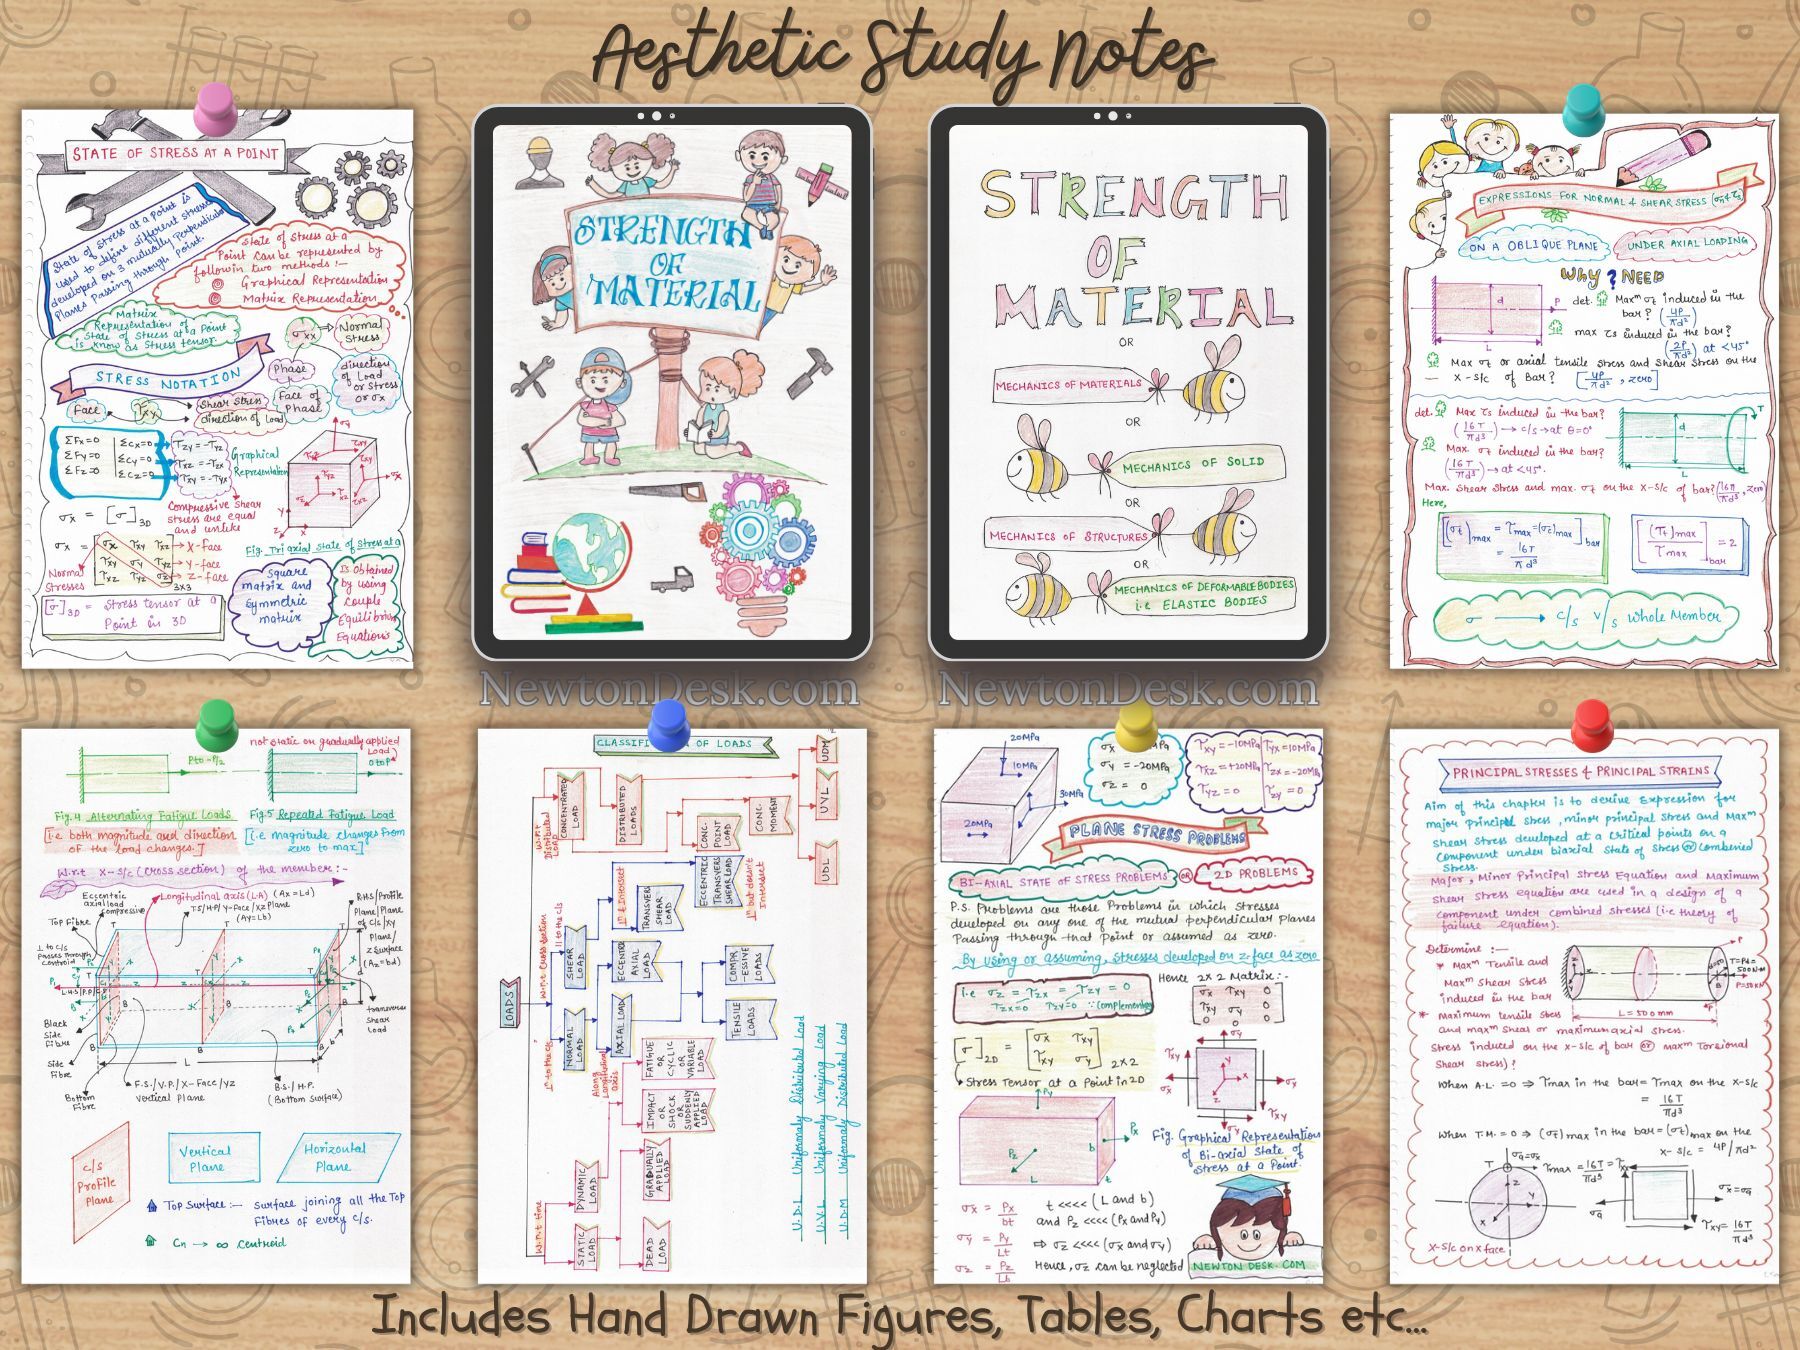 Aesthetic Study Notes
STATE OF STRESS AT A POINT
State of Stress at a Point is
used to define different stresses
developed on 3 mutually Perpendicular
Planes Passing through Point.
State of Stress at a
Point can be represented by
followin two methods:-
Graphical Representation
Matrix Representation
Matrix
Representation of
State of Stress at a Point
is know as Stress tensor.
σxx → Normal
Stress
STRESS NOTATION
Phase
direction
of Load
or Stress
or σx
Face
τxy
Shear Stress
direction of Load
Face of
Phase
ΣFx=0
ΣFy=0
ΣFz=0
ΣCx=0
ΣCy=0
ΣCz=0
τzy = -τyz
τxz = -τzx
τxy = -τyx
Graphical
Representation
Compressive Shear
stress are equal
and unlike
σx = [σ]3D
σx = [σx τxy τxz → X-face
τxy σy τyz → Y-face
τxz τyz σz] → Z-face
3x3
Normal
Stresses
Fig. Tri axial State of Stress at a
[σ]3D = Stress tensor at a
Point in 3D
Square
matrix and
Symmetric
matrix
Is obtained
by using
Couple
Equilibrium
Equations
STRENGTH
OF
MATERIAL
STRENGTH
OF
MATERIAL
OR
MECHANICS OF MATERIALS
OR
MECHANICS OF SOLID
OR
MECHANICS OF STRUCTURES
OR
MECHANICS OF DEFORMABLE BODIES
i.e ELASTIC BODIES
EXPRESSIONS FOR NORMAL & SHEAR STRESS
ON A OBLIQUE PLANE
UNDER AXIAL LOADING
Why ? NEED
d
P
L
det. Maxm σt induced in the
bar? (4P/πd²)
max τs induced in the bar?
(2P/πd²) at <45°
Max σt or axial tensile stress and Shear stress on the
X-S/c of Bar? [4P/πd², zero]
det. Max τs induced in the bar?
(16T/πd³) → c/s → at θ=0°
Max. σt induced in the bar?
(16T/πd³) → at <45°.
d
T
L
Max. Shear Stress and max. σt on the X-S/c of bar?
Here,
[(σt)max = τmax = (σc)max]bar
= 16T/πd³
[(Tt)max / τmax]bar = 2
σ → c/s v/s whole Member
NewtonDesk.com
NewtonDesk.com
P to -P/2
not static or gradually applied
Load
0 to P
Fig.4 Alternating Fatigue Loads
Fig.5 Repeated Fatigue Load
[i.e both magnitude and direction
of the load changes.]
[i.e magnitude changes from
zero to max]
W.r.t X-S/c (cross section) of the member:-
Eccentric
axial load
compressive
Longitudinal axis (L.A) (Ax=Ld)
T.S/H.P/Y-Face/XZ Plane
(Ay=Lb)
R.H.S/Profile
Plane/Plane
of c/s/XY
Plane/
Z Surface
(Az=bd)
Top Fibre
⊥ to C/s
Passes through
Centroid
transverse
Shear
Load
Black
Side
Fibre
Side
Fibre
Bottom
Fibre
L
F.S./V.P/X-Face/YZ
Vertical Plane
B.S./H.P.
(Bottom Surface)
C/s
Profile
Plane
Vertical
Plane
Horizontal
Plane
Top Surface:- Surface joining all the Top
Fibres of every c/s.
Cn → ∞ Centroid
CLASSIFI OF LOADS
LOADS
W.r.t time
STATIC LOAD
DYNAMIC LOAD
DEAD LOAD
GRADUALLY APPLIED LOAD
IMPACT OR SHOCK OR SUDDENLY APPLIED LOAD
FATIGUE OR CYCLIC OR VARIABLE LOAD
W.r.t Cross section
NORMAL LOAD
SHEAR LOAD
Along Longitudinal axis
AXIAL LOAD
ECCENTRIC AXIAL LOAD
TENSILE LOADS
COMPRESSIVE LOADS
TRANSVERS SHEAR LOAD
ECCENTRIC TRANSVERS SHEAR LOAD
W.r.t Distributed Load
CONCENTRATED LOAD
DISTRIBUTED LOADS
CONC. POINT LOAD
CONC. MOMENT
UDL
UVL
UDM
U.D.L Uniformaly Distributed Load
U.V.L Uniformaly Varying Load
U.D.M Uniformaly Distributed Load
20MPa
10MPa
30MPa
20MPa
σy = -20MPa
σz = 0
τxy = -10MPa
τyx = 10MPa
τxz = +20MPa
τzx = -20MPa
τyz = 0
τzy = 0
PLANE STRESS PROBLEMS
BI-AXIAL STATE OF STRESS PROBLEMS
OR
2D PROBLEMS
P.S. Problems are those Problems in which stresses
developed on any one of the mutual perpendicular planes
Passing through that Point or assumed as zero.
By using or assuming, stresses developed on z-face as zero
i.e σz = τzx = τzy = 0
τxz=0 τyz=0 ∵ complementary
Hence 2x2 Matrix:-
σx τxy 0
τxy σy 0
0 0 0
[σ]2D = [σx τxy
τxy σy] 2x2
Stress Tensor at a Point in 2D
Fig. Graphical Representation
of Bi-axial State of
Stress at a Point.
σx = Px/bt
σy = Py/Lt
σz = Pz/Lb
t <<<< (L and b)
and Pz <<<< (Px and Py)
⇒ σz <<<< (σx and σy)
Hence, σz can be neglected
NEWTON DESK.COM
PRINCIPAL STRESSES & PRINCIPAL STRAINS
Aim of this chapter is to derive Expression for
major Principal Stress, minor principal stress and Maxm
Shear stress developed at a critical points on a
Component under biaxial State of Stress or combined
Stress.
Major, Minor Principal Stress Equation and Maximum
Shear stress equation are used in a design of a
component under combined stresses (i.e theory of
failure equation).
Determine:-
* Maxm Tensile and
Maxm Shear Stress
induced in the bar
* Maximum tensile stress
and maxm Shear or maximum axial stress.
Stress induced on the X-S/c of bar or maxm Torsional
Shear stress)?
L = 500 mm
When A.L. = 0 ⇒ τmax in the bar = τmax on the X-S/c
= 16T/πd³
When T.M. = 0 ⇒ (σt)max in the bar = (σt)max on the
X-S/c = 4P/πd²
σa=σx
τmax = 16T/πd³ = τx
σx = σa
τxy = 16T/πd³
X-S/c on x face
Includes Hand Drawn Figures, Tables, Charts etc...